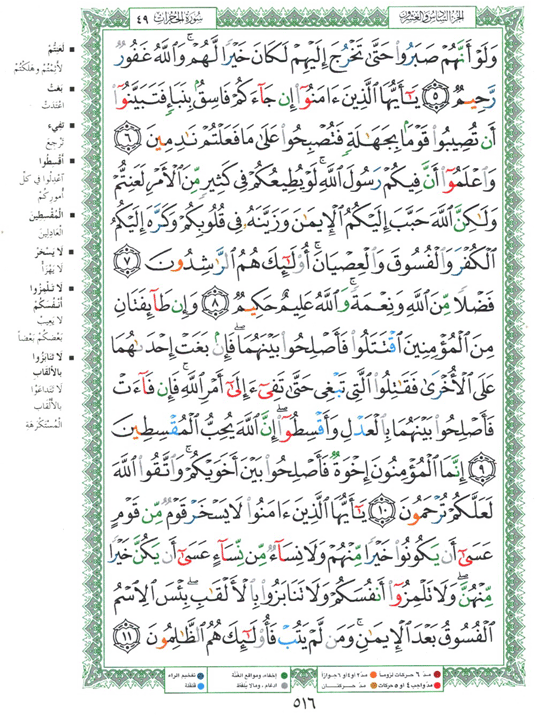 الجزء السادس والعشرون
سورة الحجرات ٤٩
وَلَوْ أَنَّهُمْ صَبَرُوا۟ حَتَّىٰ تَخْرُجَ إِلَيْهِمْ لَكَانَ خَيْرًا لَّهُمْ ۚ وَٱللَّهُ غَفُورٌ
رَّحِيمٌ ٥ يَـٰٓأَيُّهَا ٱلَّذِينَ ءَامَنُوٓا۟ إِن جَآءَكُمْ فَاسِقٌۢ بِنَبَإٍ فَتَبَيَّنُوٓا۟
أَن تُصِيبُوا۟ قَوْمًۢا بِجَهَـٰلَةٍ فَتُصْبِحُوا۟ عَلَىٰ مَا فَعَلْتُمْ نَـٰدِمِينَ ٦
وَٱعْلَمُوٓا۟ أَنَّ فِيكُمْ رَسُولَ ٱللَّهِ ۚ لَوْ يُطِيعُكُمْ فِى كَثِيرٍ مِّنَ ٱلْأَمْرِ لَعَنِتُّمْ
وَلَـٰكِنَّ ٱللَّهَ حَبَّبَ إِلَيْكُمُ ٱلْإِيمَـٰنَ وَزَيَّنَهُۥ فِى قُلُوبِكُمْ وَكَرَّهَ إِلَيْكُمُ
ٱلْكُفْرَ وَٱلْفُسُوقَ وَٱلْعِصْيَانَ ۚ أُو۟لَـٰٓئِكَ هُمُ ٱلرَّٰشِدُونَ ٧
فَضْلًا مِّنَ ٱللَّهِ وَنِعْمَةً ۚ وَٱللَّهُ عَلِيمٌ حَكِيمٌ ٨ وَإِن طَآئِفَتَانِ
مِنَ ٱلْمُؤْمِنِينَ ٱقْتَتَلُوا۟ فَأَصْلِحُوا۟ بَيْنَهُمَا ۖ فَإِنۢ بَغَتْ إِحْدَىٰهُمَا
عَلَى ٱلْأُخْرَىٰ فَقَـٰتِلُوا۟ ٱلَّتِى تَبْغِى حَتَّىٰ تَفِىٓءَ إِلَىٰٓ أَمْرِ ٱللَّهِ ۚ فَإِن فَآءَتْ
فَأَصْلِحُوا۟ بَيْنَهُمَا بِٱلْعَدْلِ وَأَقْسِطُوٓا۟ ۖ إِنَّ ٱللَّهَ يُحِبُّ ٱلْمُقْسِطِينَ
٩ إِنَّمَا ٱلْمُؤْمِنُونَ إِخْوَةٌ فَأَصْلِحُوا۟ بَيْنَ أَخَوَيْكُمْ ۚ وَٱتَّقُوا۟ ٱللَّهَ
لَعَلَّكُمْ تُرْحَمُونَ ١٠ يَـٰٓأَيُّهَا ٱلَّذِينَ ءَامَنُوا۟ لَا يَسْخَرْ قَوْمٌ مِّن قَوْمٍ
عَسَىٰٓ أَن يَكُونُوا۟ خَيْرًا مِّنْهُمْ وَلَا نِسَآءٌ مِّن نِّسَآءٍ عَسَىٰٓ أَن يَكُنَّ خَيْرًا
مِّنْهُنَّ ۖ وَلَا تَلْمِزُوٓا۟ أَنفُسَكُمْ وَلَا تَنَابَزُوا۟ بِٱلْأَلْقَـٰبِ ۖ بِئْسَ ٱلِٱسْمُ
ٱلْفُسُوقُ بَعْدَ ٱلْإِيمَـٰنِ ۚ وَمَن لَّمْ يَتُبْ فَأُو۟لَـٰٓئِكَ هُمُ ٱلظَّـٰلِمُونَ ١١
■ لَعَنِتُّمْ
لأَثِمْتُمْ وهَلَكْتُمْ
■ بَغَتْ
اعْتَدَتْ
■ تَفِيءَ
تَرْجِعَ
■ أَقْسِطُوا
اعْدِلُوا في كلّ
أُموركُمْ
■ الْمُقْسِطِينَ
الْعَادِلينَ
■ لَا يَسْخَرْ
لا يَهْزَأْ
■ لَا تَلْمِزُوا
أَنْفُسَكُمْ
لا يَعِبْ
بَعْضُكُمْ بَعْضاً
■ لَا تَنَابَزُوا
بِالأَلْقَابِ
لا تَتداعَوْا
بالألْقَابِ
الْمُسْتَكْرَهَةِ
مدّ ٦ حركات لزوماً
مدّ ٢ أو ٤ أو ٦ جوازاً
إخفاء، ومواقع الغُنَّة
تفخيم الراء
مدّ واجب ٤ أو ٥ حركات
مدّ حركتان
ادغام، ومالا يُلفَظ
قلقلة
٥١٦